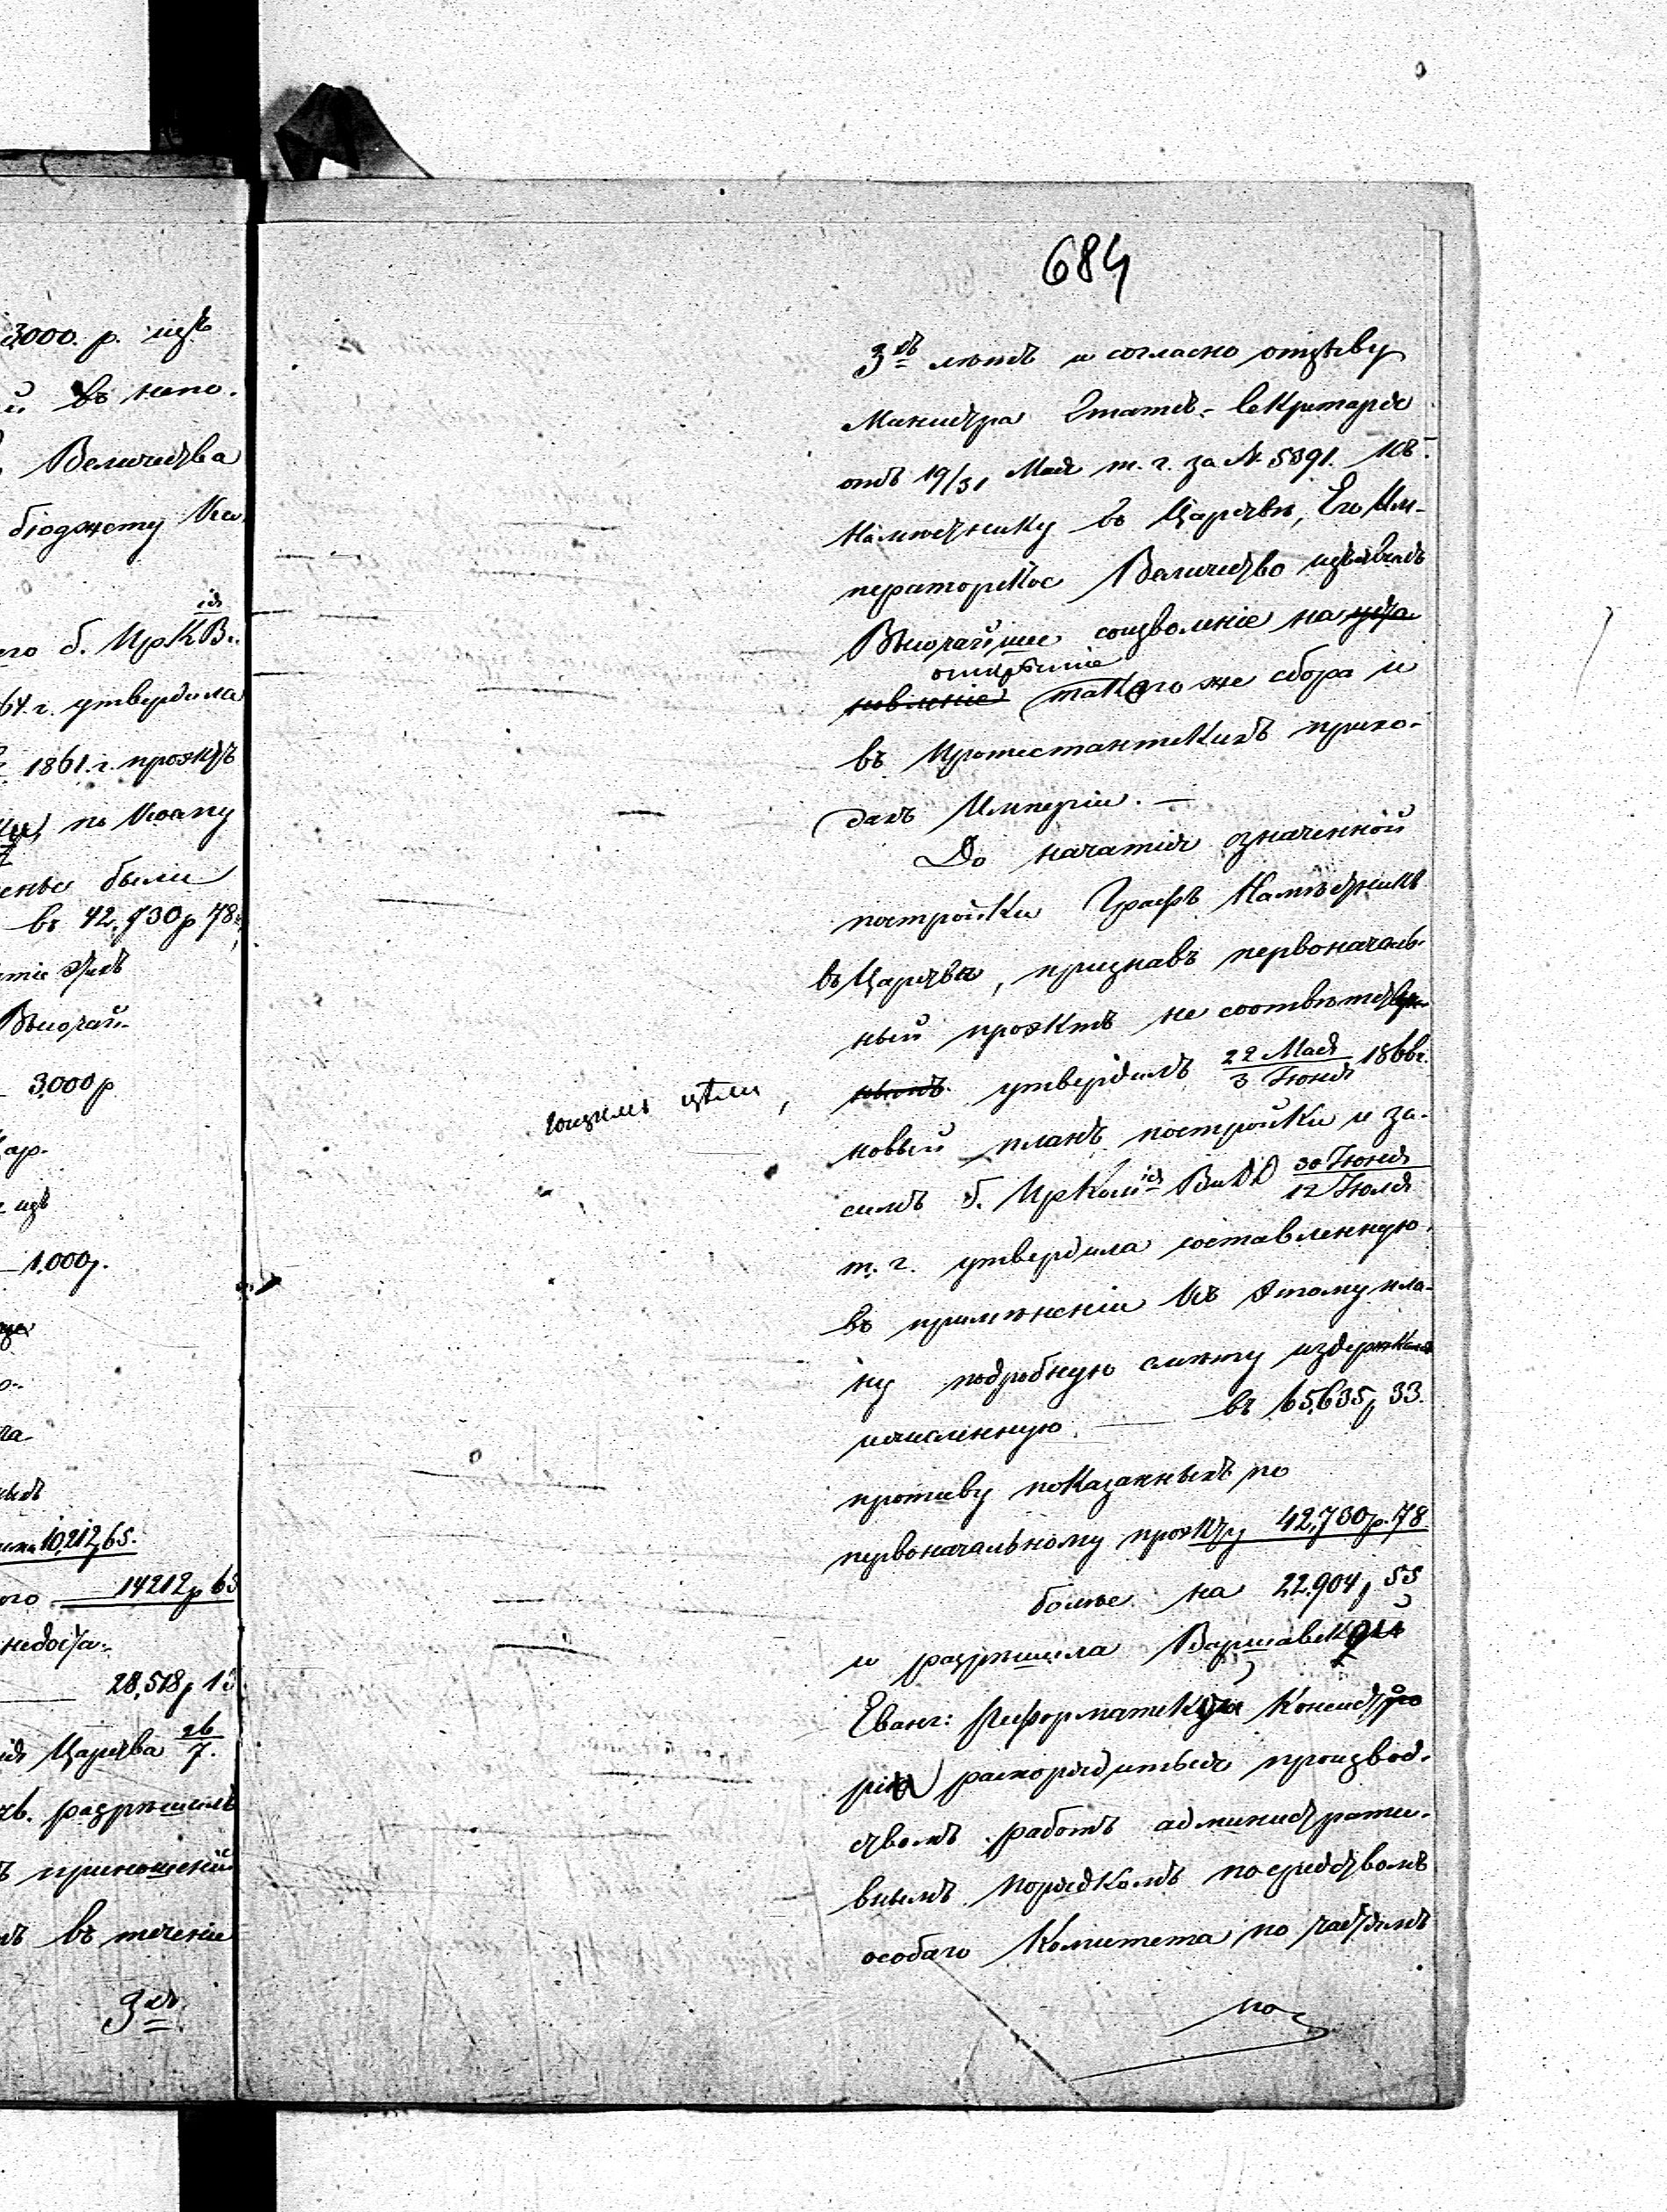 3000. р. изъ
й въ непо-
Величества
бюджету Ка
его б. ПрКВ.
64. г. утвердила
1861. г. проэктъ
по коему
были
въ 42,730 р 78
этихъ
Высочай-
3000 р
изъ
1.000 р.
10,212,65.
14212 р 65
недоста-
28,518 р 13
Царства 26/7.
разрѣшилъ
приношеній
въ теченіе
3хъ
684
3хъ лѣтъ и согласно отзыву
Министра Статсъ-Секретаря
отъ 19/31 Мая т. г. за № 5391. къ
Намѣстнику въ Царствѣ, Его Им-
ператорское Величество изъявилъ
Высочайшее соизволеніе на уста
открытіе
новленіе такого же сбора и
въ Протестантскихъ прихо-
дахъ Имперіи. —
До начатія означенной
постройки Графъ Намѣстникъ
въ Царствѣ, признавъ первоначаль-
ный проэктъ не соотвѣтству-
ющимъ цѣли,
нымъ утвердилъ 22 Мая/3 Іюня 1866 г.
новый планъ постройки и за-
симъ б. ПрКом. ВиДД 30 Іюня/12 Іюля
т. г. утвердила составленную
въ примѣненіи къ этому пла-
ну подробную смѣту издержекъ
исчисленную — въ 65,635, 33.
противу показанныхъ по
первоначальному проэкту 42,730 р. 78
болѣе на 22,904, 55
и разрѣшила Варшавской
Еванг: Реформатской Консисто
ріи распорядиться производ-
ствомъ работъ администрати-
внымъ порядкомъ посредствомъ
особаго Комитета по частямъ
по